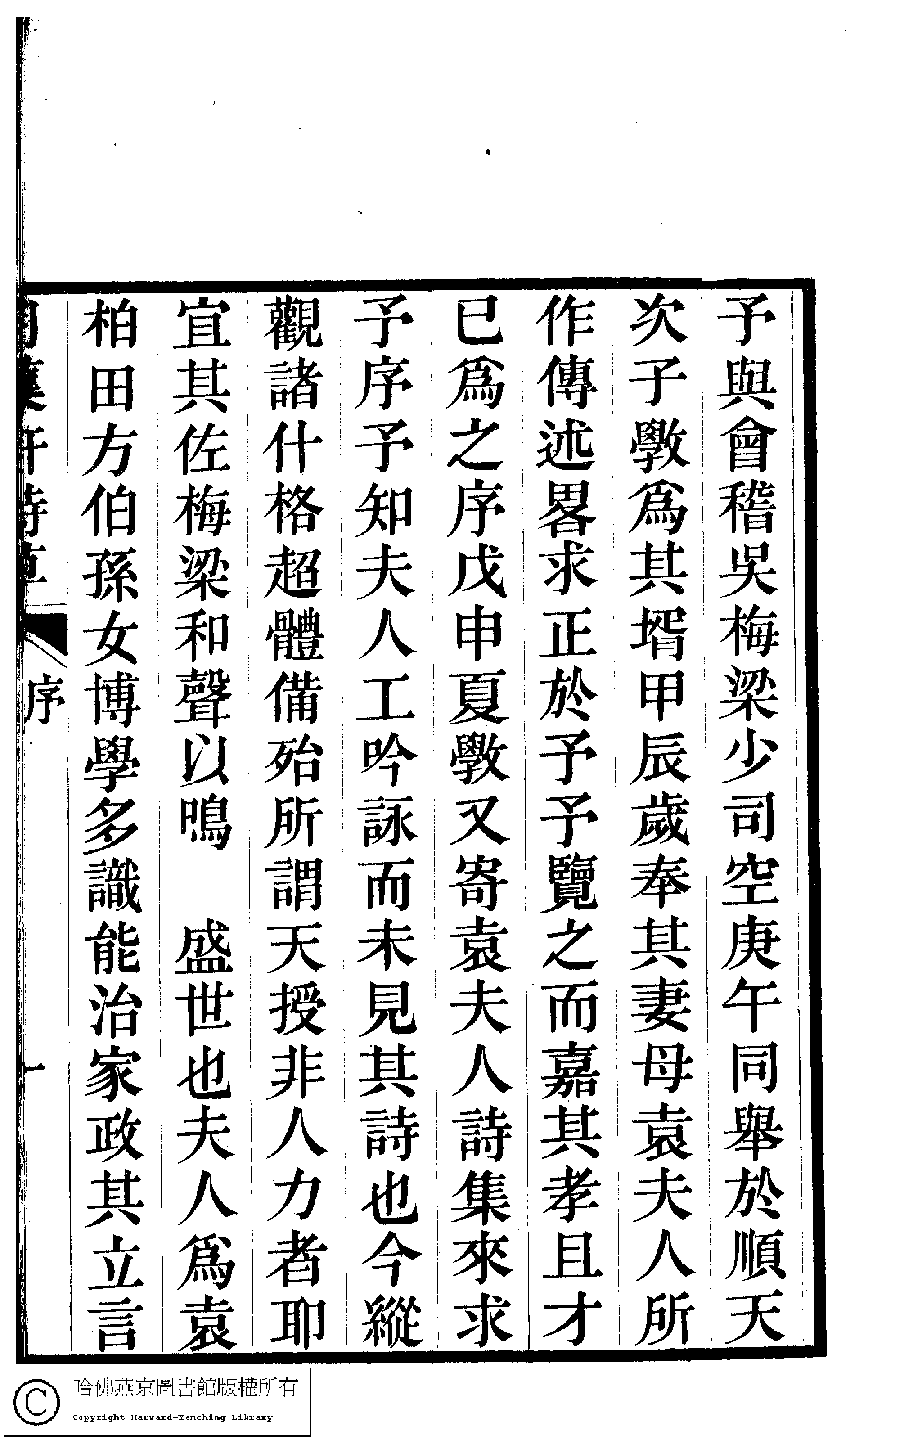 予與會稽吳梅梁少司空庚午同舉於順天
次子斆爲其壻甲辰歲奉其妻母袁夫人所
作傳述畧求正於予予覽之而嘉其孝且才
已爲之序戊申夏斆又寄袁夫人詩集來求
予序予知夫人工吟詠而未見其詩也今縱
觀諸什格超體備殆所謂天授非人力者耶
宜其佐梅梁和聲以鳴　盛世也夫人爲袁
柏田方伯孫女博學多識能治家政其立言
序
哈佛燕京圖書館版權所有
Copyright Harvard-Yenching Library